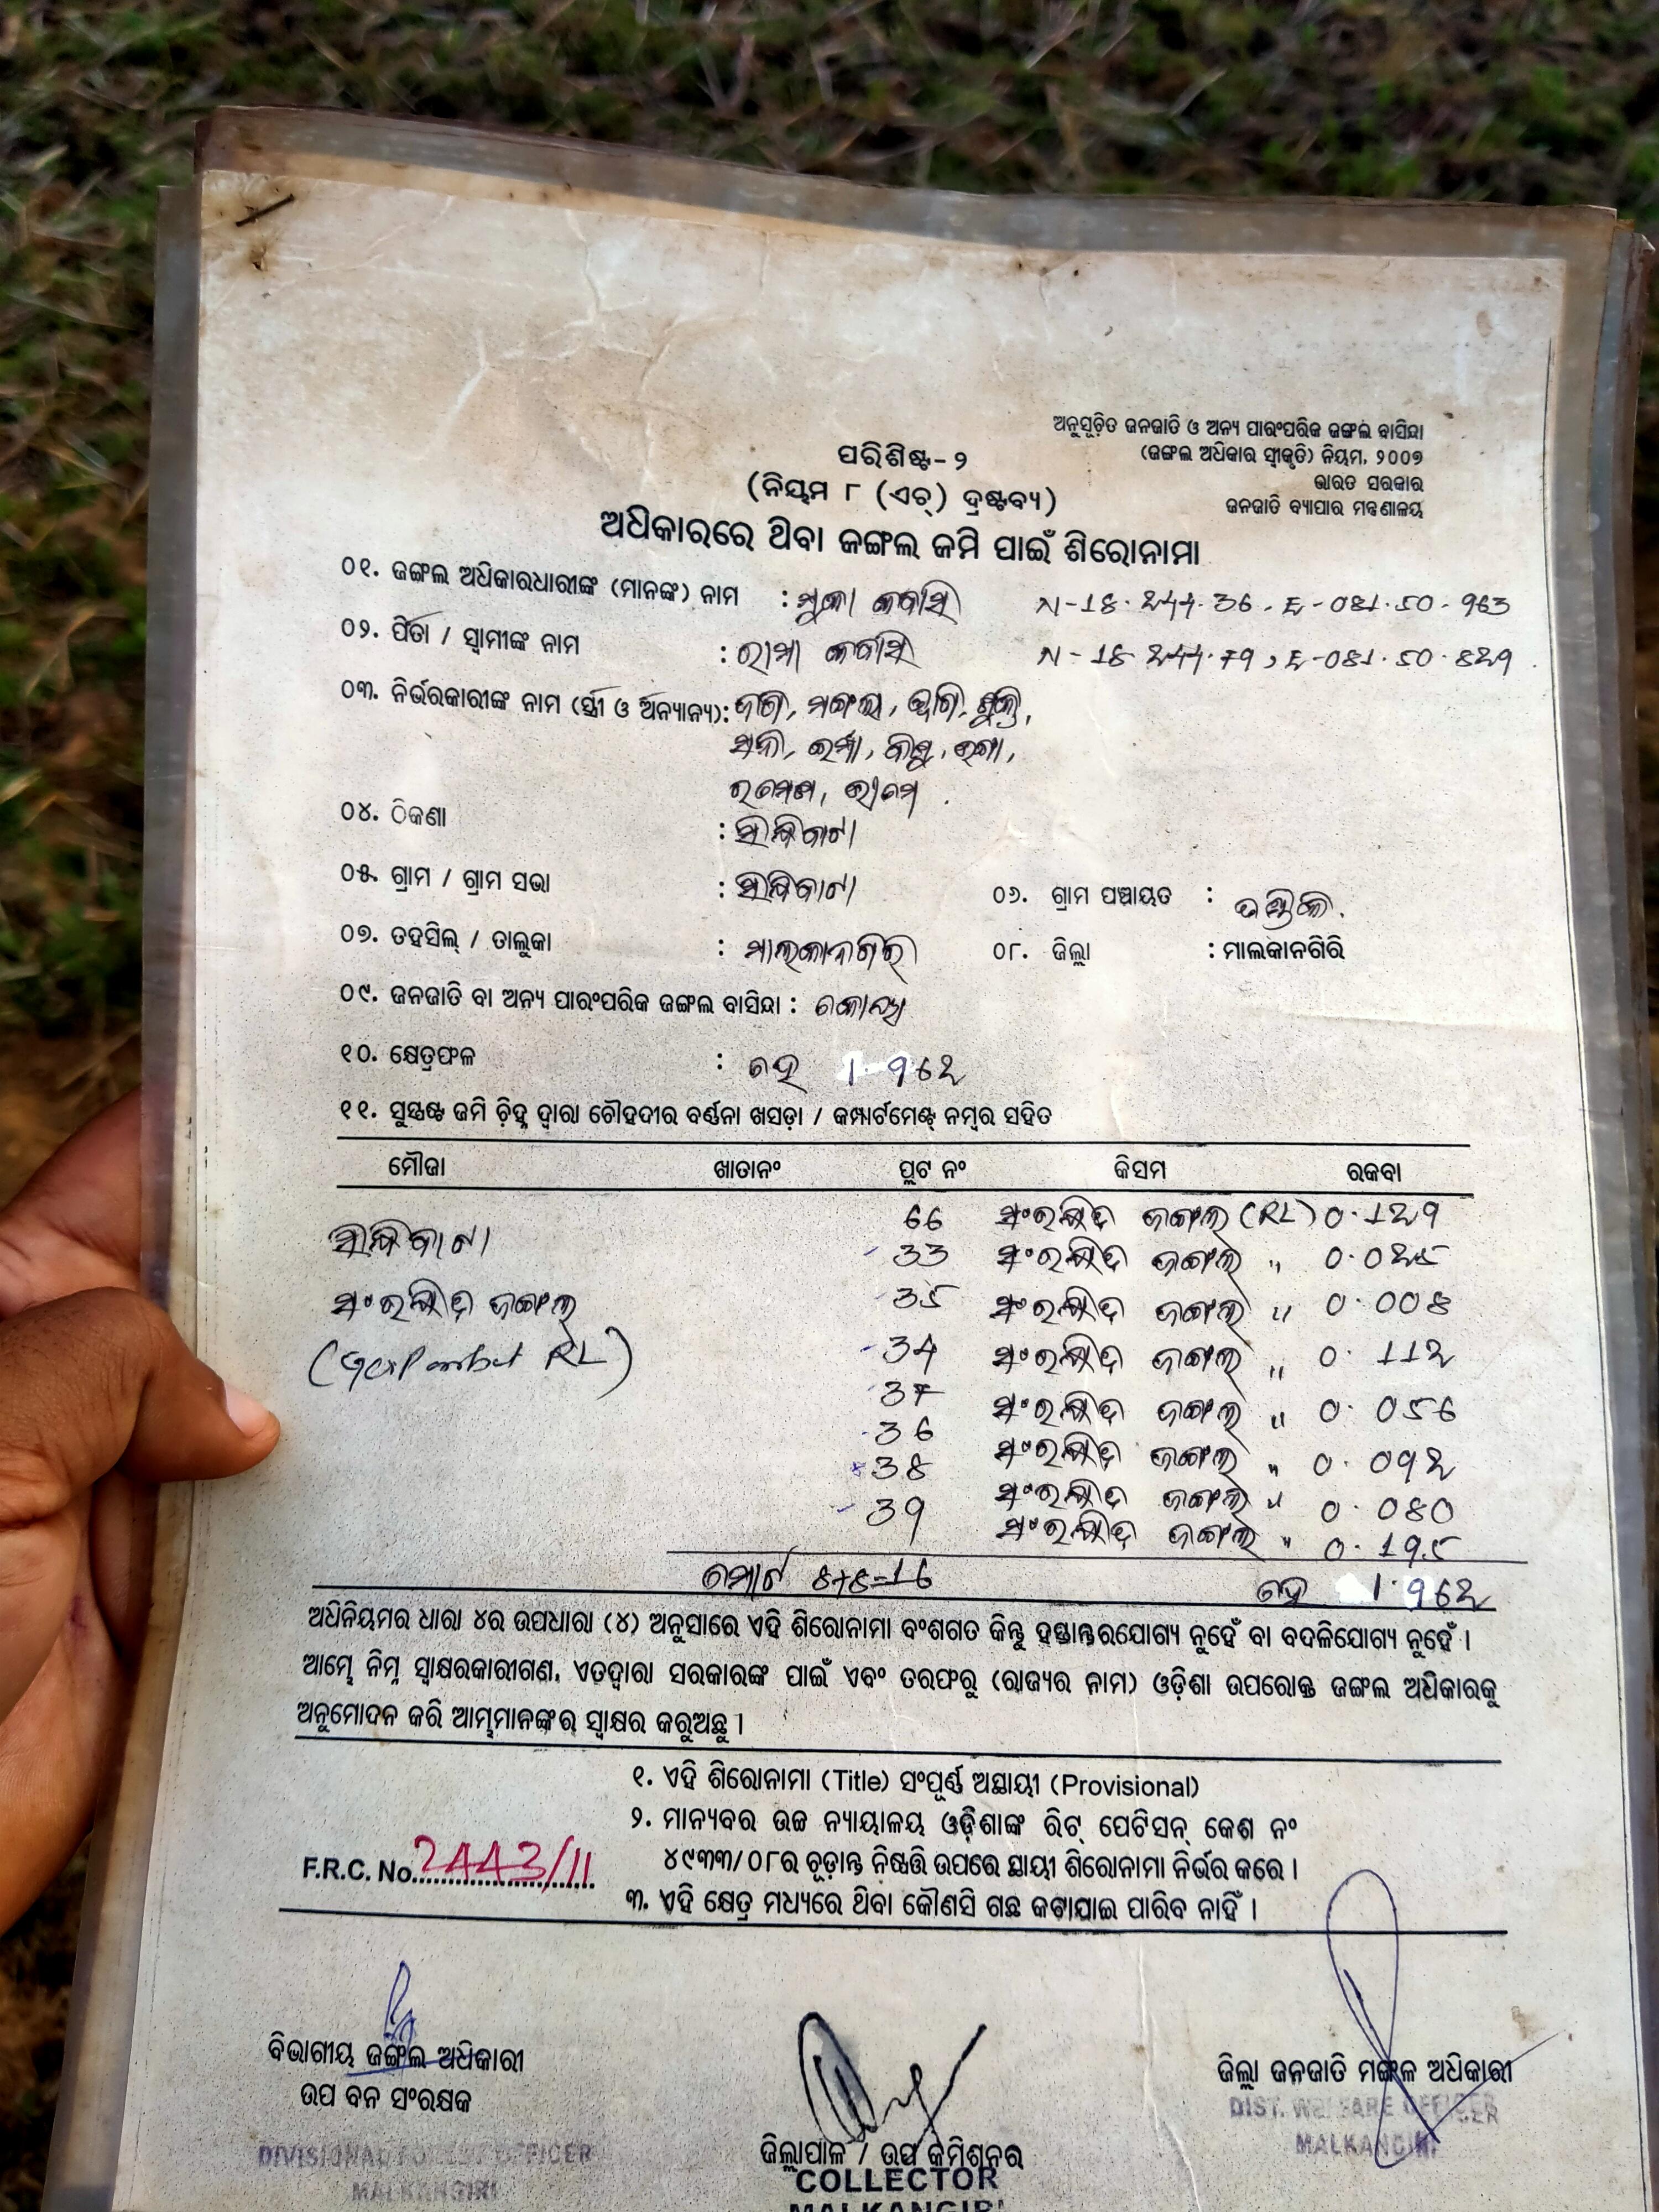 ଅନୁସୂଚିତ ଜନଜାତି ଓ ଅନ୍ୟ ପାରଂପରିକ ଜଙ୍ଗଲ ବାସିନ୍ଦା
(ଜଙ୍ଗଲ ଅଧିକାର ସ୍ୱୀକୃତି) ନିୟମ, ୨୦୦୭
ଭାରତ ସରକାର
ଜନଜାତି ବ୍ୟାପାର ମନ୍ତ୍ରଣାଳୟ
ପରିଶିଷ୍ଟ-୨
(ନିୟମ ୮ (ଏଚ୍) ଦ୍ରଷ୍ଟବ୍ୟ)
ଅଧିକାରରେ ଥିବା ଜଙ୍ଗଲ ଜମି ପାଇଁ ଶିରୋନାମା
୦୧. ଜଙ୍ଗଲ ଅଧିକାରଧାରୀଙ୍କ (ମାନଙ୍କ) ନାମ : ମୁକା କବାସି
୦୨. ପିତା / ସ୍ୱାମୀଙ୍କ ନାମ : ରାମା କବାସି
୦୩. ନିର୍ଭରକାରୀଙ୍କ ନାମ (ସ୍ତ୍ରୀ ଓ ଅନ୍ୟାନ୍ୟ):
୦୪. ଠିକଣା :
୦୫. ଗ୍ରାମ / ଗ୍ରାମ ସଭା : ୦୬. ଗ୍ରାମ ପଞ୍ଚାୟତ :
୦୭. ତହସିଲ୍ / ତାଲୁକା : ମାଲକାନଗିରି ୦୮. ଜିଲ୍ଲା : ମାଲକାନଗିରି
୦୯. ଜନଜାତି ବା ଅନ୍ୟ ପାରଂପରିକ ଜଙ୍ଗଲ ବାସିନ୍ଦା : କୋୟା
୧୦. କ୍ଷେତ୍ରଫଳ : ହେ
୧୧. ସୁସ୍ପଷ୍ଟ ଜମି ଚିହ୍ନ ଦ୍ୱାରା ଚୌହଦୀର ବର୍ଣ୍ଣନା ଖସଡ଼ା / କମ୍ପାର୍ଟମେଣ୍ଟ୍ ନମ୍ବର ସହିତ
ମୌଜା ଖାତାନଂ ପ୍ଲଟ ନଂ କିସମ ରକବା
66 ସଂରକ୍ଷିତ ଜଙ୍ଗଲ (RL)
33 ସଂରକ୍ଷିତ ଜଙ୍ଗଲ "
35 ସଂରକ୍ଷିତ ଜଙ୍ଗଲ " 0.008
ସଂରକ୍ଷିତ ଜଙ୍ଗଲ
34 ସଂରକ୍ଷିତ ଜଙ୍ଗଲ " 0.112
37 ସଂରକ୍ଷିତ ଜଙ୍ଗଲ " 0.056
36 ସଂରକ୍ଷିତ ଜଙ୍ଗଲ " 0.092
38 ସଂରକ୍ଷିତ ଜଙ୍ଗଲ " 0.080
39 ସଂରକ୍ଷିତ ଜଙ୍ଗଲ " 0.195
ମୋଟ 8+8=16 ହେ
ଅଧିନିୟମର ଧାରା ୪ର ଉପଧାରା (୪) ଅନୁସାରେ ଏହି ଶିରୋନାମା ବଂଶଗତ କିନ୍ତୁ ହସ୍ତାନ୍ତରଯୋଗ୍ୟ ନୁହେଁ ବା ବଦଳିଯୋଗ୍ୟ ନୁହେଁ ।
ଆମ୍ଭେ ନିମ୍ନ ସ୍ୱାକ୍ଷରକାରୀଗଣ, ଏତଦ୍ୱାରା ସରକାରଙ୍କ ପାଇଁ ଏବଂ ତରଫରୁ (ରାଜ୍ୟର ନାମ) ଓଡ଼ିଶା ଉପରୋକ୍ତ ଜଙ୍ଗଲ ଅଧିକାରକୁ
ଅନୁମୋଦନ କରି ଆମ୍ଭମାନଙ୍କର ସ୍ୱାକ୍ଷର କରୁଅଛୁ ।
୧. ଏହି ଶିରୋନାମା (Title) ସଂପୂର୍ଣ୍ଣ ଅସ୍ଥାୟୀ (Provisional)
୨. ମାନ୍ୟବର ଉଚ୍ଚ ନ୍ୟାୟାଳୟ ଓଡ଼ିଶାଙ୍କ ରିଟ୍ ପେଟିସନ୍ କେଶ ନଂ
୪୯୩୩/୦୮ର ଚୂଡ଼ାନ୍ତ ନିଷ୍ପତ୍ତି ଉପରେ ସ୍ଥାୟୀ ଶିରୋନାମା ନିର୍ଭର କରେ ।
F.R.C. No. 2443/11
୩. ଏହି କ୍ଷେତ୍ର ମଧ୍ୟରେ ଥିବା କୌଣସି ଗଛ କଟାଯାଇ ପାରିବ ନାହିଁ ।
ବିଭାଗୀୟ ଜଙ୍ଗଲ ଅଧିକାରୀ
ଉପ ବନ ସଂରକ୍ଷକ
DIVISIONAL FOREST OFFICER
MALKANGIRI
ଜିଲ୍ଲାପାଳ / ଉପ କମିଶନର
COLLECTOR
MALKANGIRI
ଜିଲ୍ଲା ଜନଜାତି ମଙ୍ଗଳ ଅଧିକାରୀ
DIST. WELFARE OFFICER
MALKANGIRI